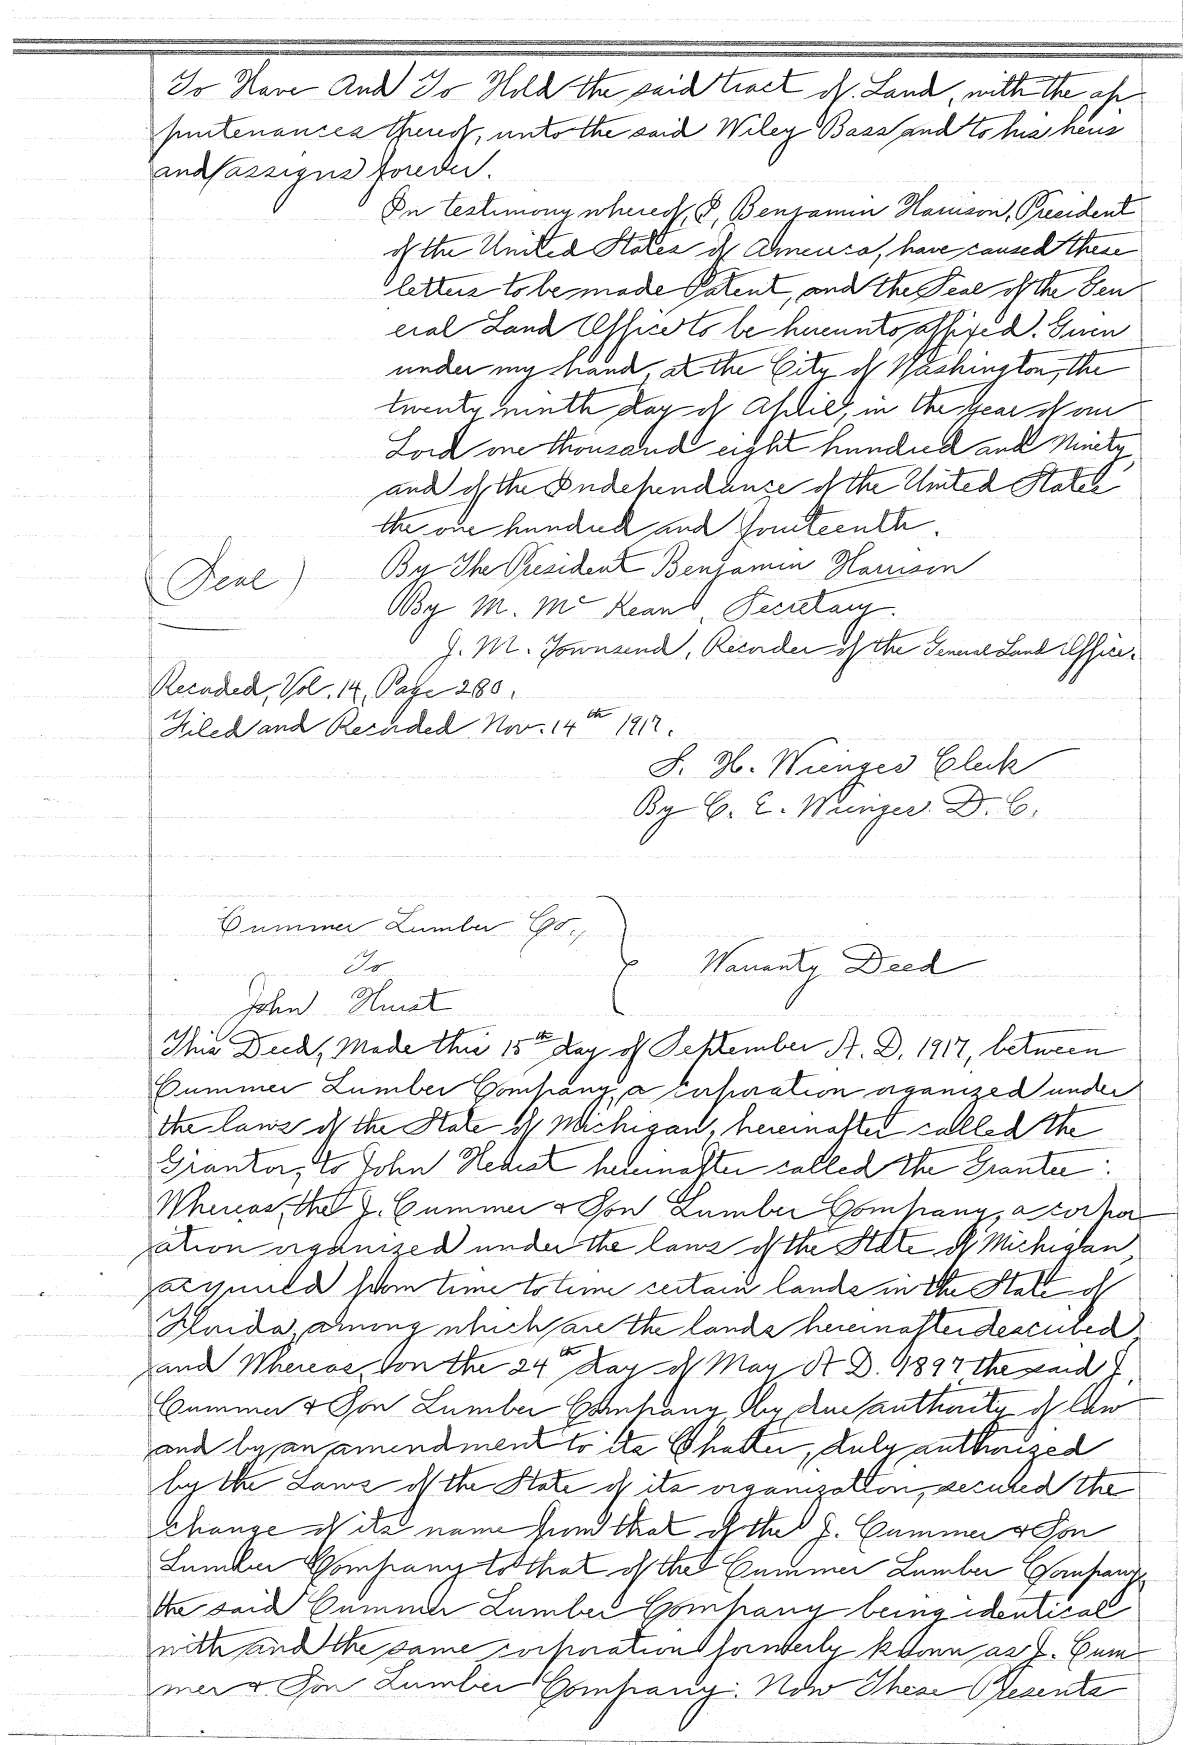 To Have And To Hold the said tract of Land, with the ap
purtenances thereof, unto the said Wiley Bass and to his heirs
and assigns forever.
In testimony whereof, I, Benjamin Harrison, President
of the United States of America, have caused these
letters to be made Patent, and the Seal of the Gen
eral Land Office to be hereunto affixed. Given
under my hand, at the City of Washington, the
twenty ninth day of April, in the year of our
Lord one thousand eight hundred and Ninety,
and of the Independance of the United States
the one hundred and fourteenth.
(Seal)
By The President Benjamin Harrison
By M. McKean, Secretary.
J. M. Townsend, Recorder of the General Land Office.
Recorded, Vol. 14, Page 280.
Filed and Recorded Nov. 14th 1917.
S. H. Wienges Clerk
By C. E. Wienges. D. C.
Cummer Lumber Co.,
To
John Hurst
Warranty Deed
This Deed, Made this 15th day of September A. D. 1917, between
Cummer Lumber Company, a corporation organized under
the laws of the State of Michigan, hereinafter called the
Grantor, to John Hearst hereinafter called the Grantee:
Whereas, the J. Cummer & Son Lumber Company, a corpor
ation organized under the laws of the State of Michigan,
acquired from time to time certain lands in the State of
Florida, among which are the lands hereinafter described,
and Whereas, on the 24th day of May A D. 1897, the said J.
Cummer & Son Lumber Company, by due authority of law
and by an amendment to its Charter, duly authorized
by the Laws of the State of its organization, secured the
change of its name from that of the J. Cummer & Son
Lumber Company to that of the Cummer Lumber Company,
the said Cummer Lumber Company being identical
with and the same corporation formerly known as J. Cum
mer & Son Lumber Company: Now These Presents